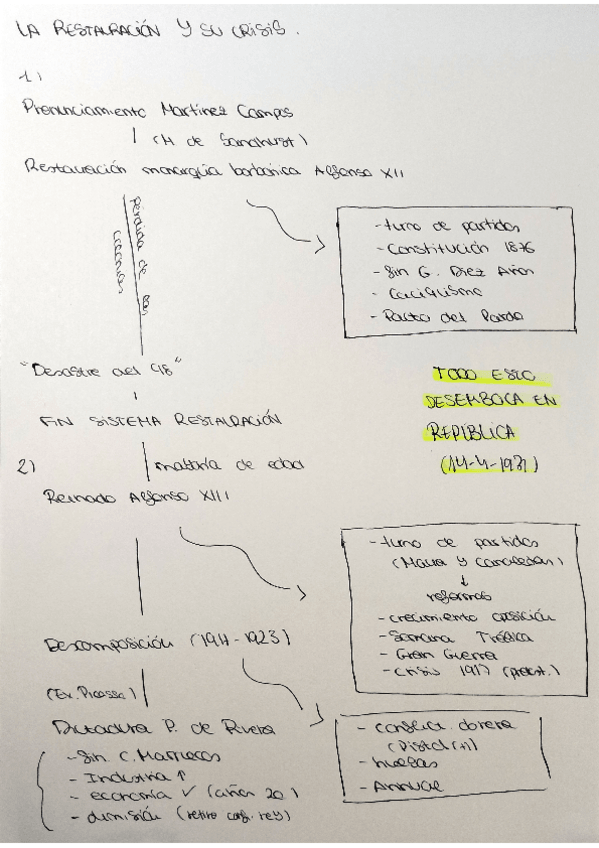 LA RESTAURACIÓN Y SU CRISIS.
1)
Pronunciamiento Martínez Campos
(M de Sandhurst)
Restauración monarquía borbónica Alfonso XII
Pérdida de las
creencias
- turno de partidos
- Constitución 1876
- fin G. Diez Años
- Caciquismo
- Pacto del Pardo
"Desastre del 98"
FIN SISTEMA RESTAURACIÓN
TODO ESTO
DESEMBOCA EN
REPÚBLICA
(14-4-1931)
mayoría de edad
2)
Reinado Alfonso XIII
- turno de partidos
(Maura y Canalejas)
reformas
- crecimiento oposición
- Semana Trágica
- Gran Guerra
- crisis 1917 (prest.)
Descomposición (1914-1923)
(Ex. Picasso)
Dictadura P. de Rivera
- fin C. Marruecos
- Industria ↑
- economía ✓ (años 20)
- dimisión (retiro conf. rey)
- conflict. obrera
(Pistol(+))
- huelgas
- Annual